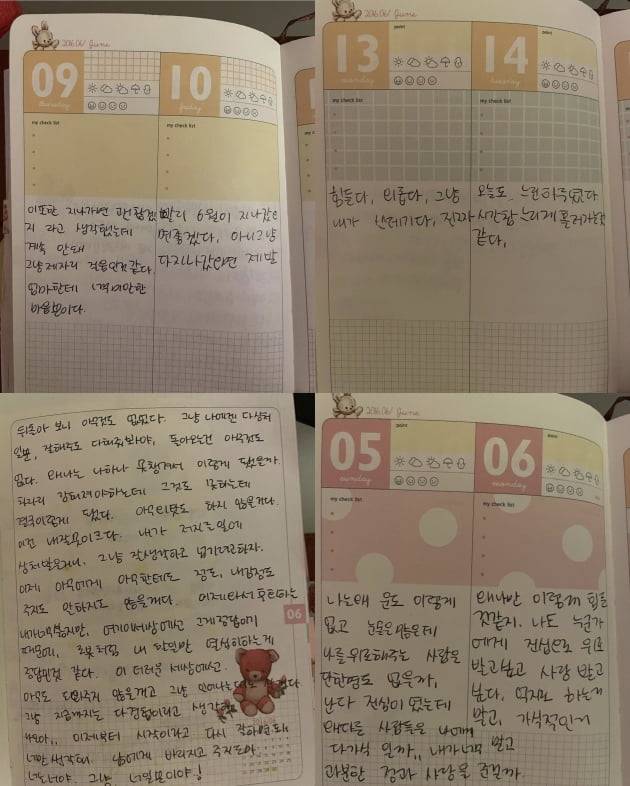 2016.06/ June
09
thursday
10
friday
my check list
my check list
이또한 지나가면 괜찮겠
지 라고 생각했는데
계속 안돼
그냥 제자리 걸음인것같다.
엄마한테 미안한
마음뿐이다.
빨리 6월이 지나갔으
면좋겠다, 아니그냥
다지나갔으면 제발
2016.06/ June
13
monday
point
14
tuesday
point
my check list
my check list
힘들다, 외롭다, 그냥
내가 쓰레기다, 진짜
오늘도
시간참 느리게 흘러가는것
같다.
뒤돌아 보니 아무것도 없었다. 그냥 나에겐 다 상처
일뿐, 잘해줘도 다해줘봐야, 돌아오는건 아무것도
없다. 왜나는 나하나 못챙겨서 이렇게 됐을까.
차라리 강해져야하는데 그것도 못하는데
결국이렇게 됐다. 아무것도 하지 않을거다.
이건 내잘못이크다. 내가 저지른일에
상처받은거니, 그냥 잘생각하고 넘기려고하자.
이제 아무에게 아무한테도 정도, 내감정도
주지도 않하지도 않을거다. 이제와서 후회하는
내가
때문에, 내 할일만 열심히하는게
정답인것 같다. 이 더러운 세상에선.
아무도 도와주지 않을꺼고 그냥
그냥 지금까지는 다경험이라고 생각
이제부터 시작이라고 다시 잘하면돼
너만생각해. 남에게 바라지고 주지도마.
너는너야. 그냥, 너일뿐이야!
06
2016.06/ June
05
sunday
point
06
monday
point
my check list
my check list
나는왜 운도 이렇게
없고 눈물은많은데
나를위로해주는 사람은
단한명도 없을까,
난다 진심이 없는데
왜다른 사람들은 나에게
다가식 일까,, 내가너무 많고
과분한 정과 사랑을 준걸까.
왜나만 이렇게 힘들
것같지. 나도 누군가
에게 진심으로 위로
받고싶고 사랑 받고
싶다. 억지로 하는게
말고, 가식적인거
말고